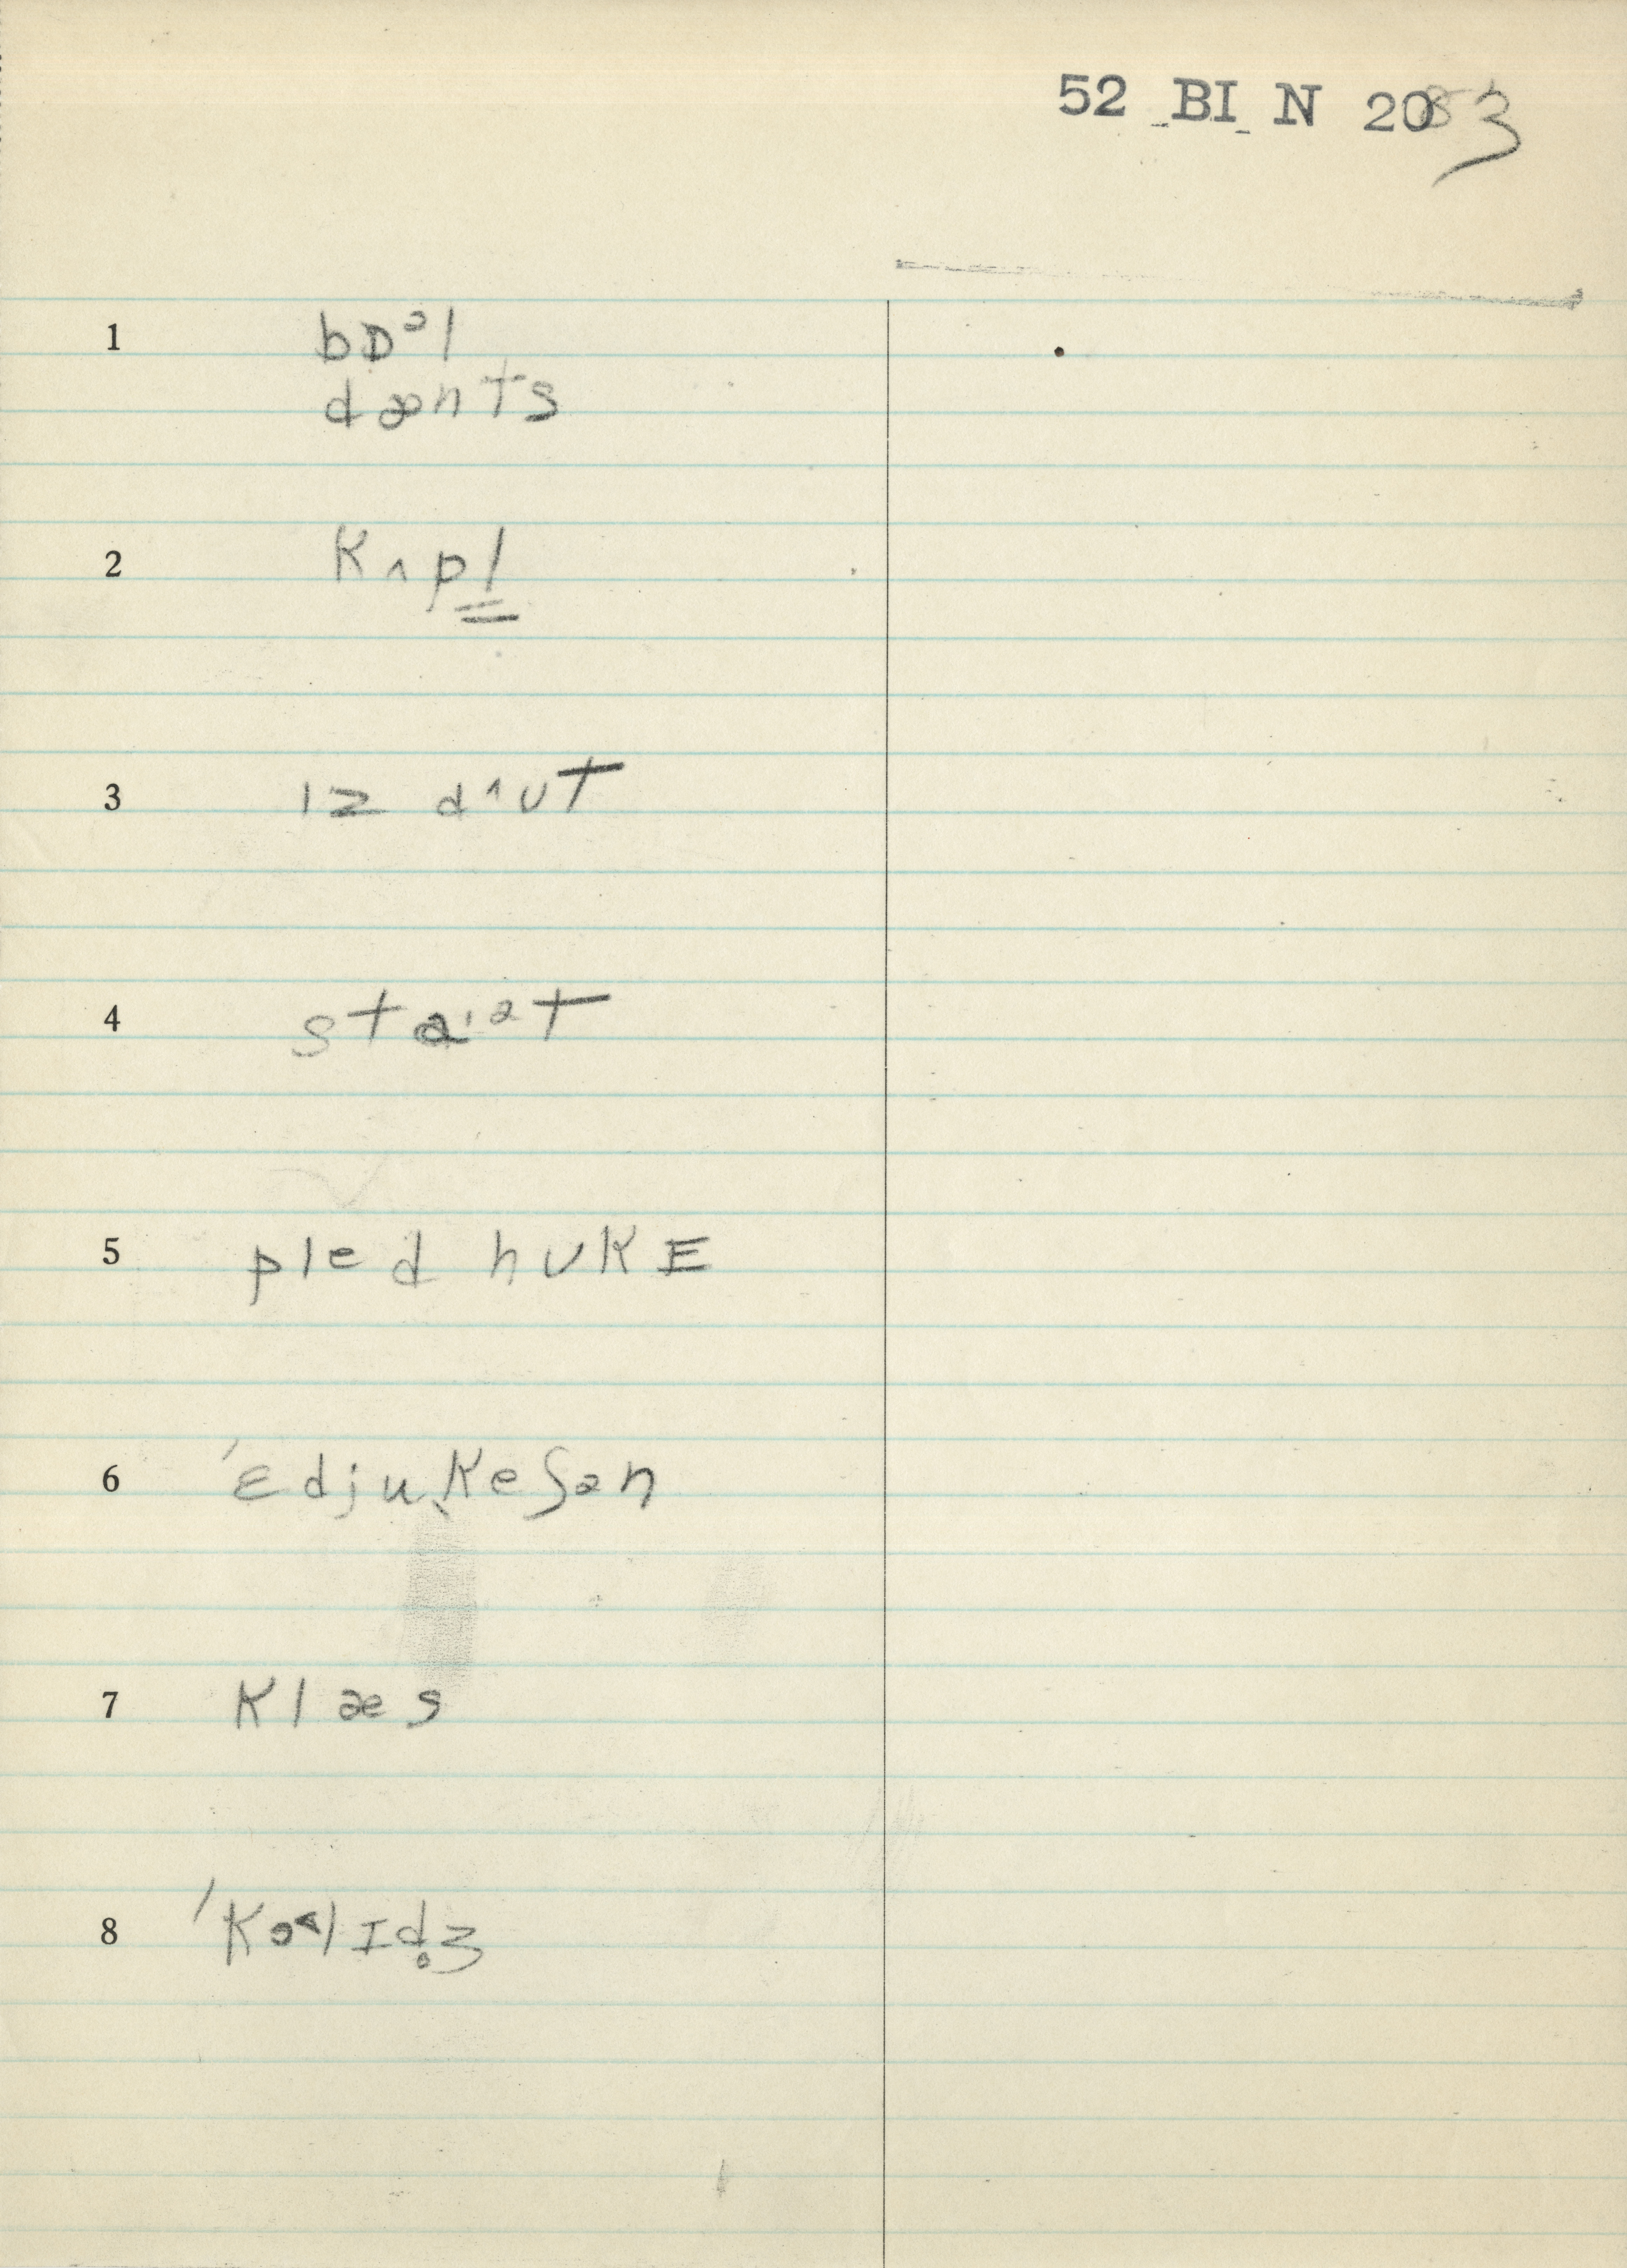 52 BI N 2083
1 bɒᵊl
dænts
2 kʌpl
3 ɪz dʌut
4 staɪət
5 pled hukɛ
6 ˈɛdjuˌkeʃən
7 klæs
8 ˈkɒlɪd̥ʒ